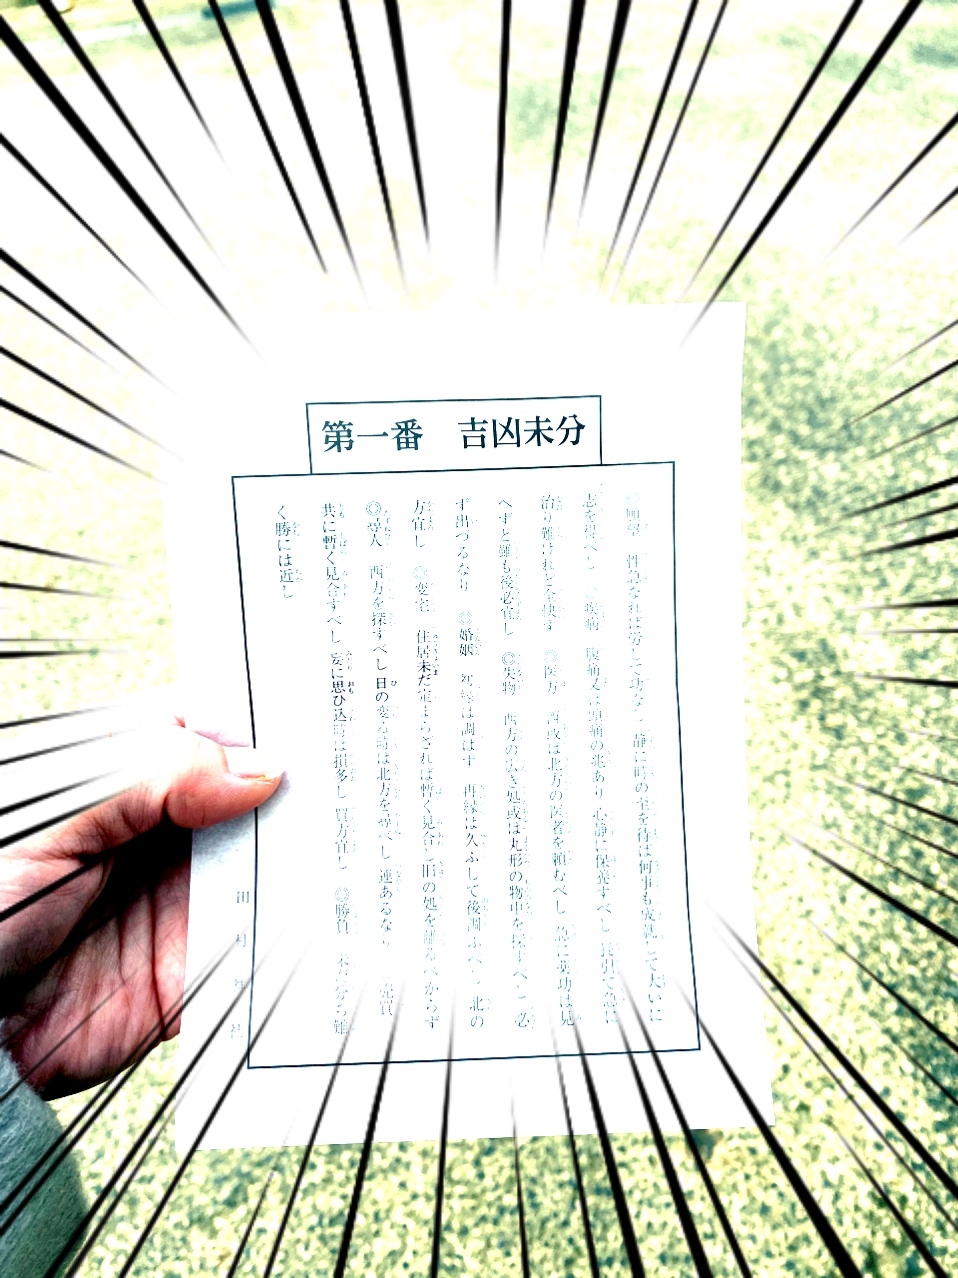 第一番 吉凶未分
◎願望 性急なれば労して功なし 静に時の至を待は何事も成就して大いに
志を得べし ◎疾病 腹痛又は頭痛の兆あり 心静に保養すべし 長引て急に
治り難けれど全快す ◎医方 西或は北方の医者を頼むべし 急に薬功は見
へずと雖も後必宜し ◎失物 西方の広き処或は丸形の物中を探すべし 必
ず出づるなり ◎婚姻 初縁は調はず 再縁は久ふして後調ふべし 北の
方宜し ◎変宅 住居未だ定まらざれば暫く見合し旧の処を離るべからず
◎尋人 西方を探すべし 日の変る時は北方を尋べし 連あるなり 売買
共に暫く見合すべし 妄に思ひ込時は損多し 買方宜し ◎勝負 未だ分ち難
く勝には近し
田村神社